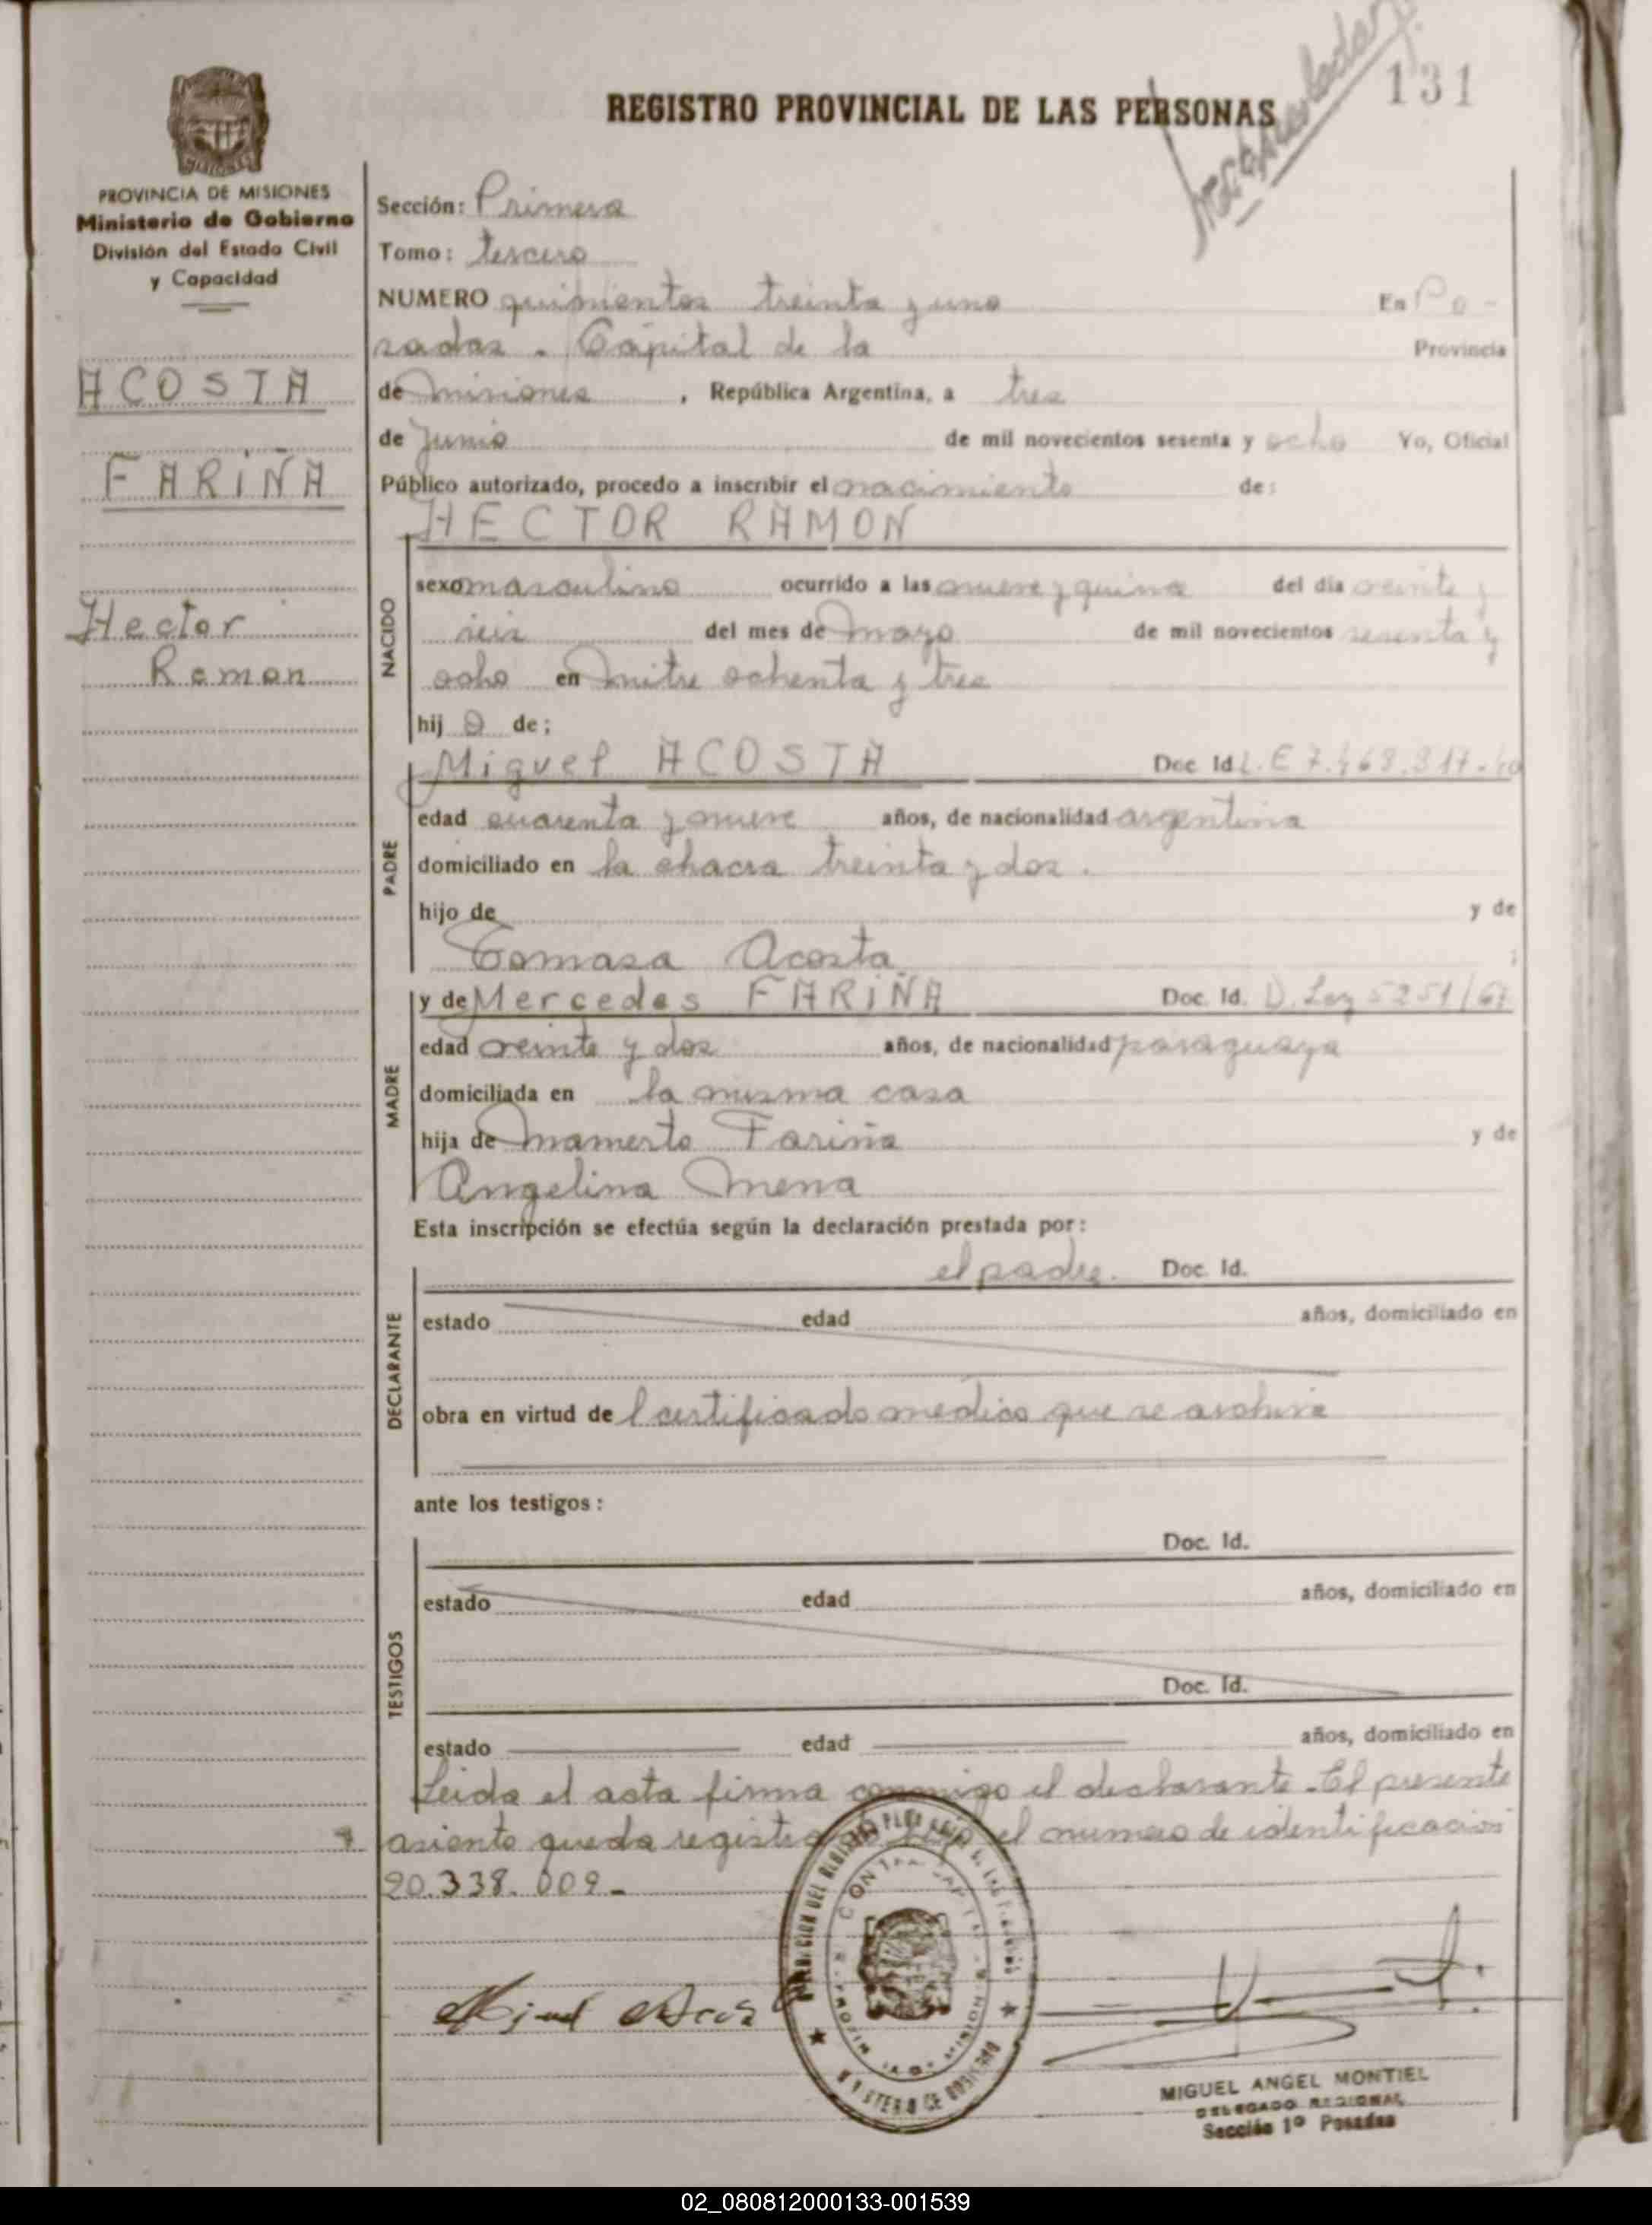 131
REGISTRO PROVINCIAL DE LAS PERSONAS
PROVINCIA DE MISIONES
Ministerio de Gobierno
División del Estado Civil
y Capacidad
ACOSTA
FARIÑA
Hector
Ramon
Sección: Primera
Tomo: tercero
NUMERO quinientos treinta y uno En Po-
sadas. Capital de la Provincia
de Misiones, República Argentina, a tres
de Junio de mil novecientos sesenta y ocho Yo, Oficial
Público autorizado, procedo a inscribir el nacimiento de:
HECTOR RAMON
NACIDO
sexo masculino ocurrido a las nueve y quince del día veinte y
seis del mes de Mayo de mil novecientos sesenta y
ocho en Mitre ochenta y tres
hij o de;
PADRE
Miguel ACOSTA Doc Id L.E
edad cuarenta y nueve años, de nacionalidad argentina
domiciliado en la chacra treinta y dos.
hijo de y de
Tomasa Acosta ;
MADRE
y de Mercedes FARIÑA Doc. Id. D. Ley 5251/67
edad veinte y dos años, de nacionalidad paraguaya
domiciliada en la misma casa
hija de Mamerto Fariña y de
Angelina Mena
Esta inscripción se efectúa según la declaración prestada por:
DECLARANTE
el padre. Doc. Id.
estado edad años, domiciliado en
obra en virtud de l certificado medico que se archiva
ante los testigos:
TESTIGOS
Doc. Id.
estado edad años, domiciliado en
Doc. Id.
estado edad años, domiciliado en
Leida el acta firma conmigo el declarante. El presente
asiento queda registrado bajo el numero de identificacion
20.338.009.-
Miguel Acosta
MIGUEL ANGEL MONTIEL
DELEGADO REGIONAL
Sección 1º Posadas
02_080812000133-001539